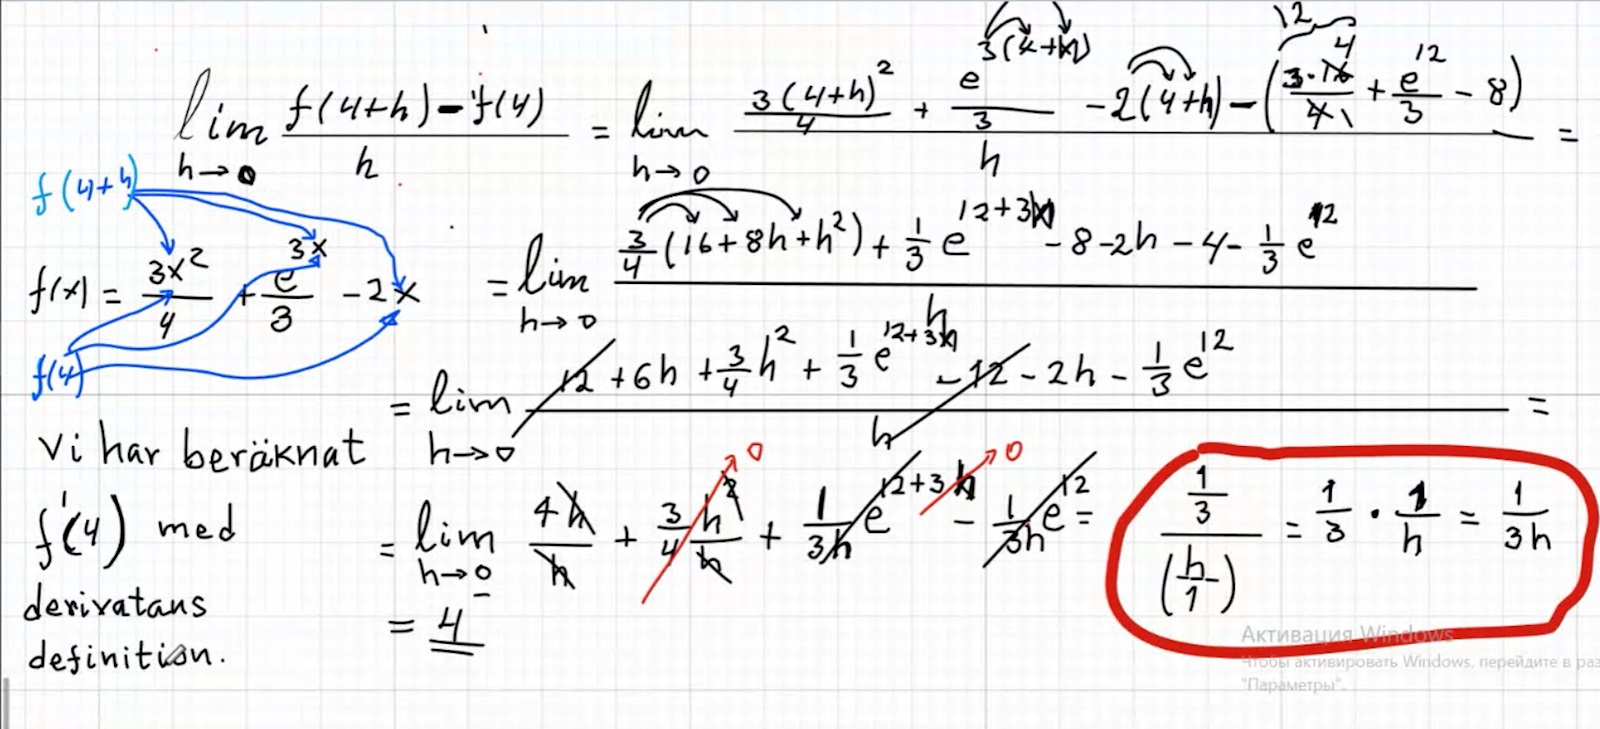 lim h→0 (f(4+h) - f(4))/h = lim h→0 (3(4+h)²/4 + e^(3(4+h))/3 - 2(4+h) - (3·16/4 + e^12/3 - 8))/h =
12
4
f(4+h)
= lim h→0 (3/4(16+8h+h²) + 1/3 e^(12+3h) - 8 - 2h - 4 - 1/3 e^12)/h
f(x) = 3x²/4 + e^(3x)/3 - 2x
f(4)
= lim h→0 (12 + 6h + 3/4 h² + 1/3 e^(12+3h) - 12 - 2h - 1/3 e^12)/h =
Vi har beräknat
f'(4) med
derivatans
definition.
= lim h→0 4h/h + 3/4 h²/h + 1/3h e^(12+3h) - 1/3h e^12 =
0
0
= 4
(1/3)/(h/1) = 1/3 · 1/h = 1/3h
Активация Windows
Чтобы активировать Windows, перейдите в раз
"Параметры".